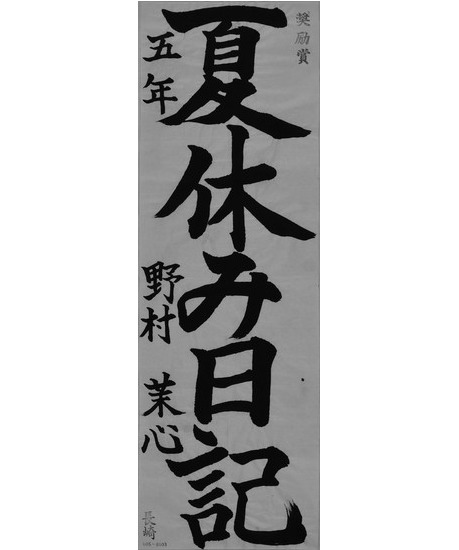 奨励賞
夏休み日記
五年 野村 茉心
長崎